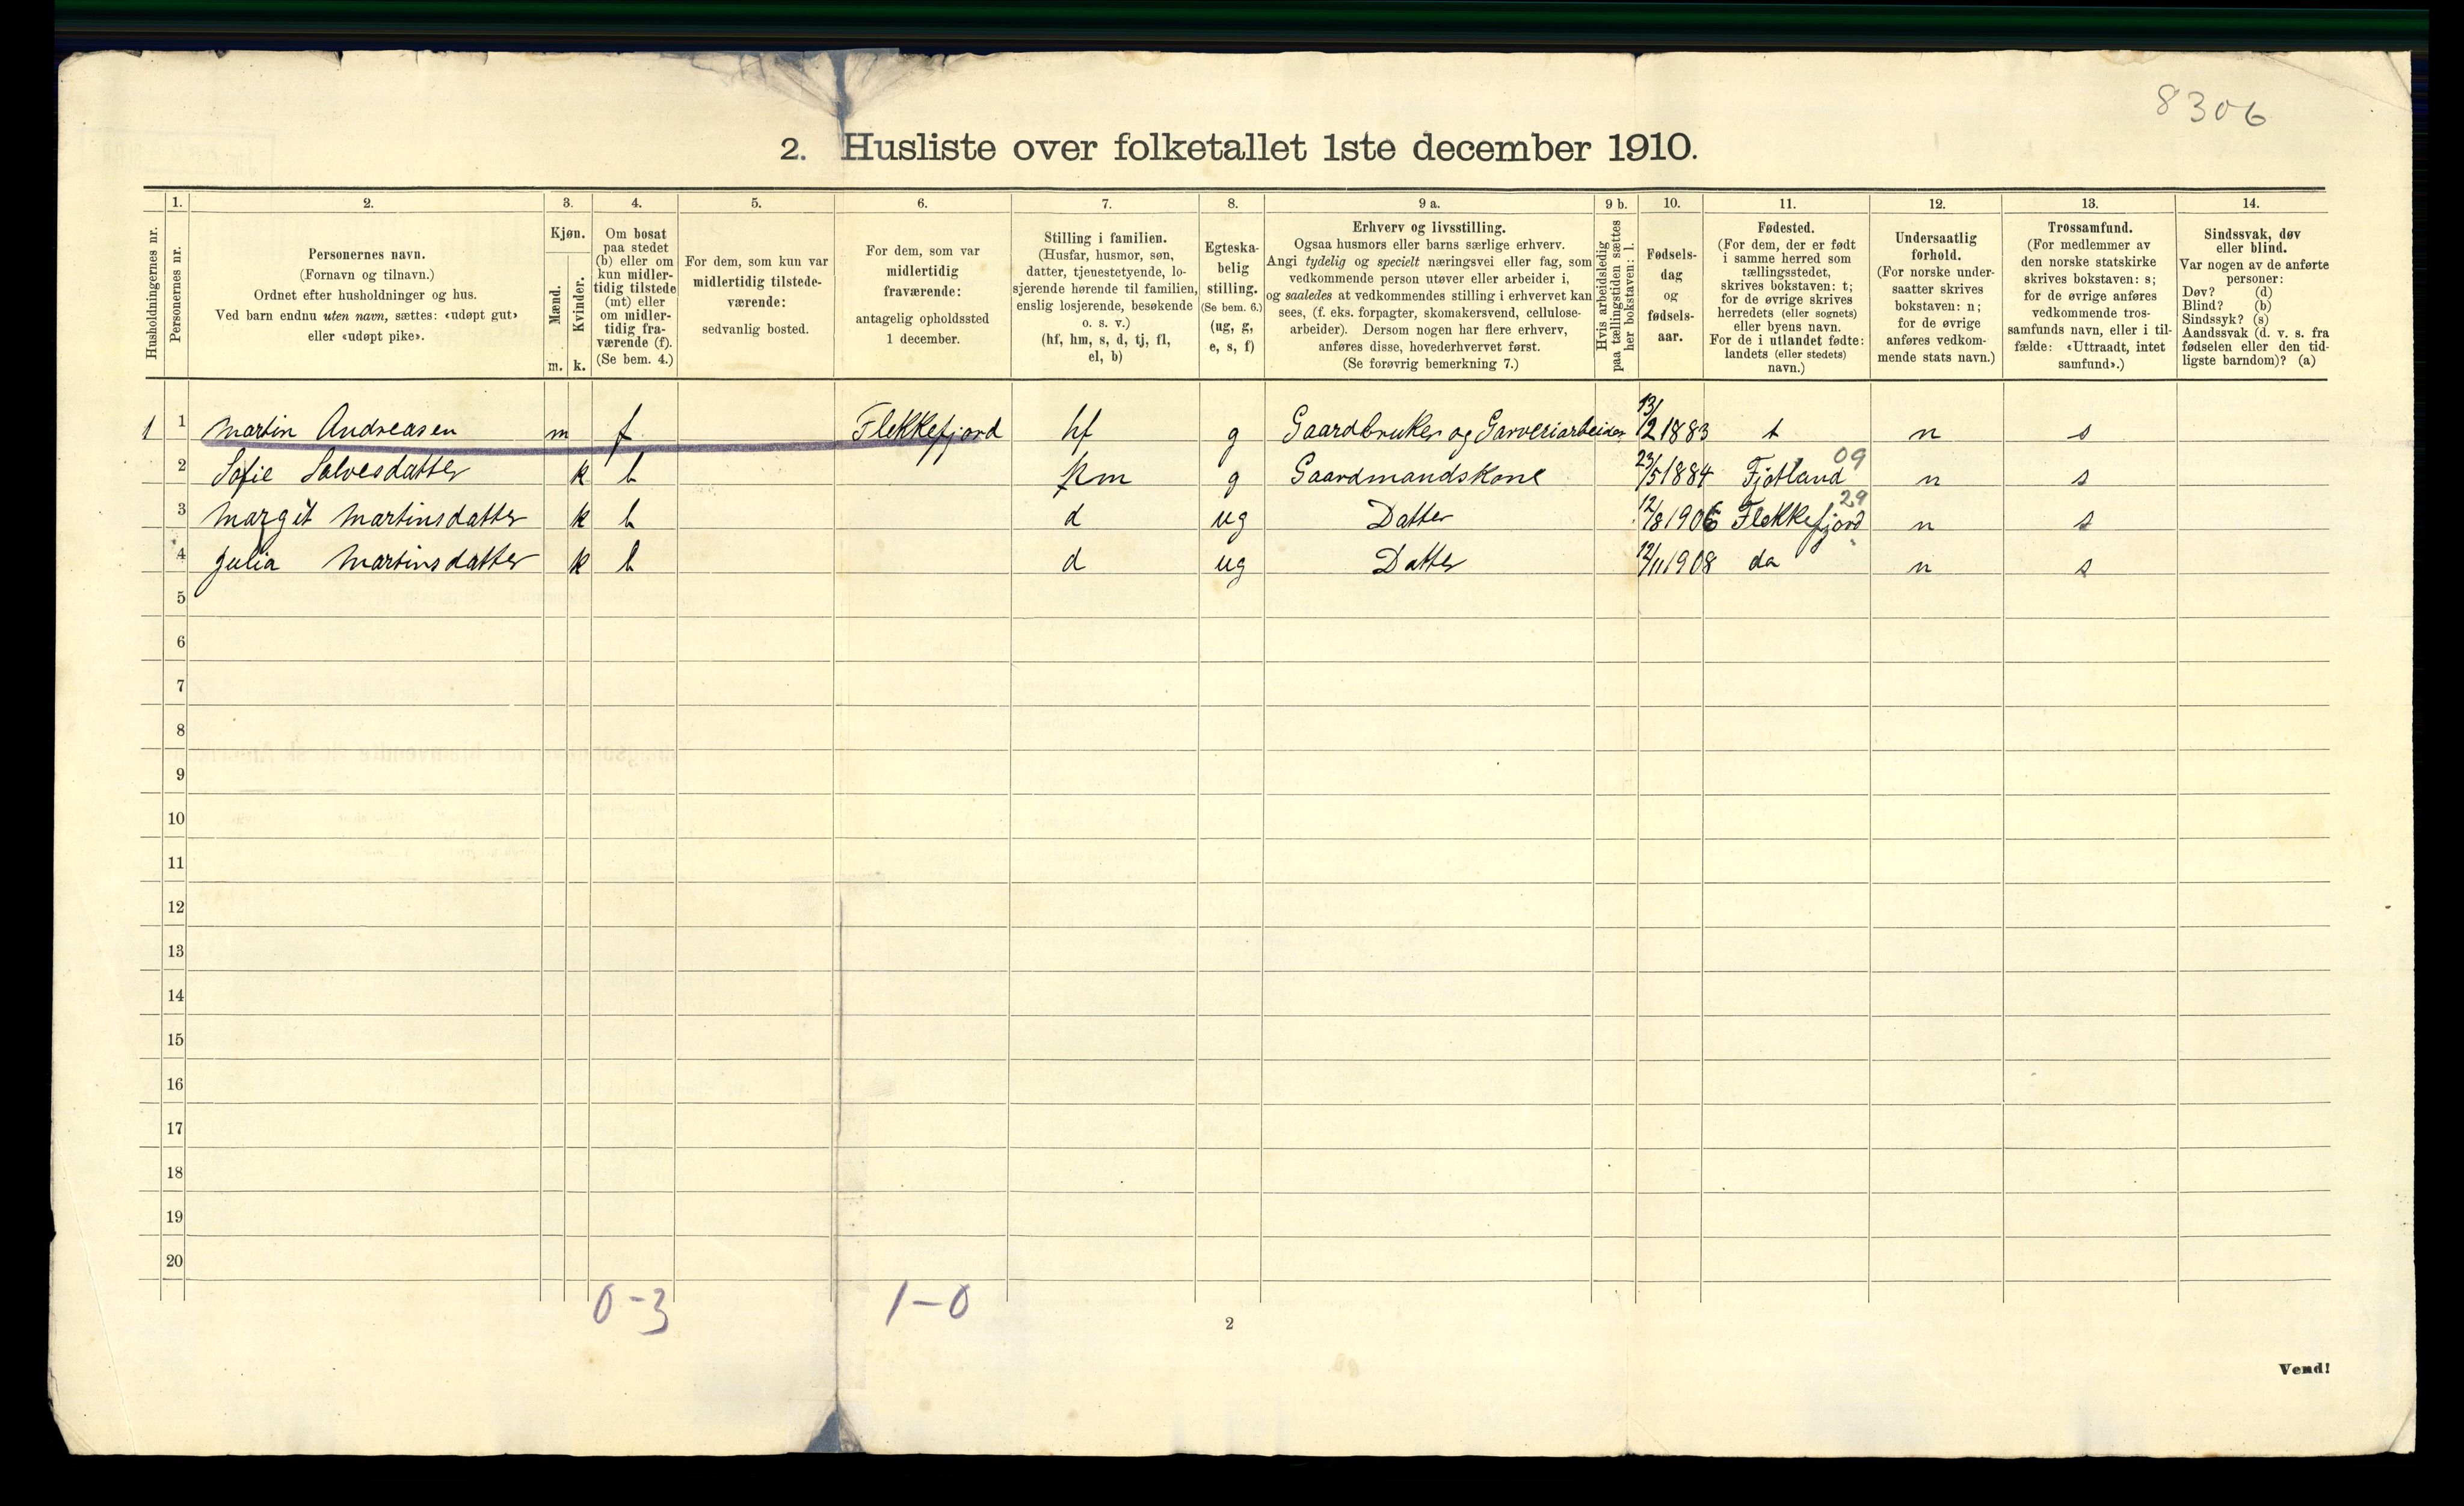 8306
2. Husliste over folketallet 1ste december 1910.
Husholdningernes nr.
1.
Personernes nr.
2.
Personernes navn.
(Fornavn og tilnavn.)
Ordnet efter husholdninger og hus.
Ved barn endnu uten navn, sættes: «udøpt gut»
eller «udøpt pike».
3.
Kjøn.
Mænd.
Kvinder.
m. k.
4.
Om bosat
paa stedet
(b) eller om
kun midler-
tidig tilstede
(mt) eller
om midler-
tidig fra-
værende (f).
(Se bem. 4.)
5.
For dem, som kun var
midlertidig tilstede-
værende:
sedvanlig bosted.
6.
For dem, som var
midlertidig
fraværende:
antagelig opholdssted
1 december.
7.
Stilling i familien.
(Husfar, husmor, søn,
datter, tjenestetyende, lo-
sjerende hørende til familien,
enslig losjerende, besøkende
o. s. v.)
(hf, hm, s, d, tj, fl,
el, b)
8.
Egteska-
belig
stilling.
(Se bem. 6.)
(ug, g,
e, s, f)
9 a.
Erhverv og livsstilling.
Ogsaa husmors eller barns særlige erhverv.
Angi tydelig og specielt næringsvei eller fag, som
vedkommende person utøver eller arbeider i,
og saaledes at vedkommendes stilling i erhvervet kan
sees, (f. eks. forpagter, skomakersvend, cellulose-
arbeider). Dersom nogen har flere erhverv,
anføres disse, hovederhvervet først.
(Se forøvrig bemerkning 7.)
9 b.
Hvis arbeidsledig
paa tællingstiden sættes
her bokstaven: l.
10.
Fødsels-
dag
og
fødsels-
aar.
11.
Fødested.
(For dem, der er født
i samme herred som
tællingsstedet,
skrives bokstaven: t;
for de øvrige skrives
herredets (eller sognets)
eller byens navn.
For de i utlandet fødte:
landets (eller stedets)
navn.)
12.
Undersaatlig
forhold.
(For norske under-
saatter skrives
bokstaven: n;
for de øvrige
anføres vedkom-
mende stats navn.)
13.
Trossamfund.
(For medlemmer av
den norske statskirke
skrives bokstaven: s;
for de øvrige anføres
vedkommende tros-
samfunds navn, eller i til-
fælde: «Uttraadt, intet
samfund».)
14.
Sindssvak, døv
eller blind.
Var nogen av de anførte
personer:
Døv? (d)
Blind? (b)
Sindssyk? (s)
Aandssvak (d. v. s. fra
fødselen eller den tid-
ligste barndom)? (a)
1 1 Martin Andreasen m f Flekkefjord hf g Gaardbruker og Garveriarbeider 13/2 1883 t n s
2 Sofie Salvesdatter k b hm g Gaardmandskone 23/5 1884 Fjotland 09 n s
3 Margit Martinsdatter k b d ug Datter 12/8 1906 Flekkefjord 29 n s
4 Julia Martinsdatter k b d ug Datter 12/11 1908 do n s
5
6
7
8
9
10
11
12
13
14
15
16
17
18
19
20
0-3 1-0
2
Vend!